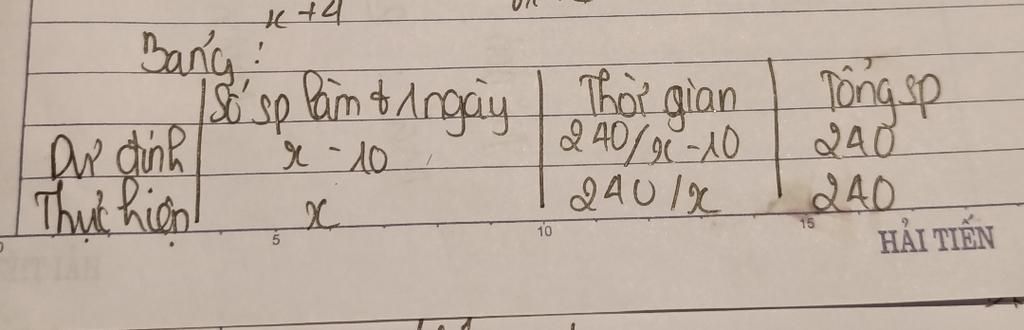 x+4
Bảng:
Số sp làm t 1 ngày Thời gian Tổng sp
Dự định x - 10 240/x - 10 240
Thực hiện x 240/x 240
5 10 15
HẢI TIẾN